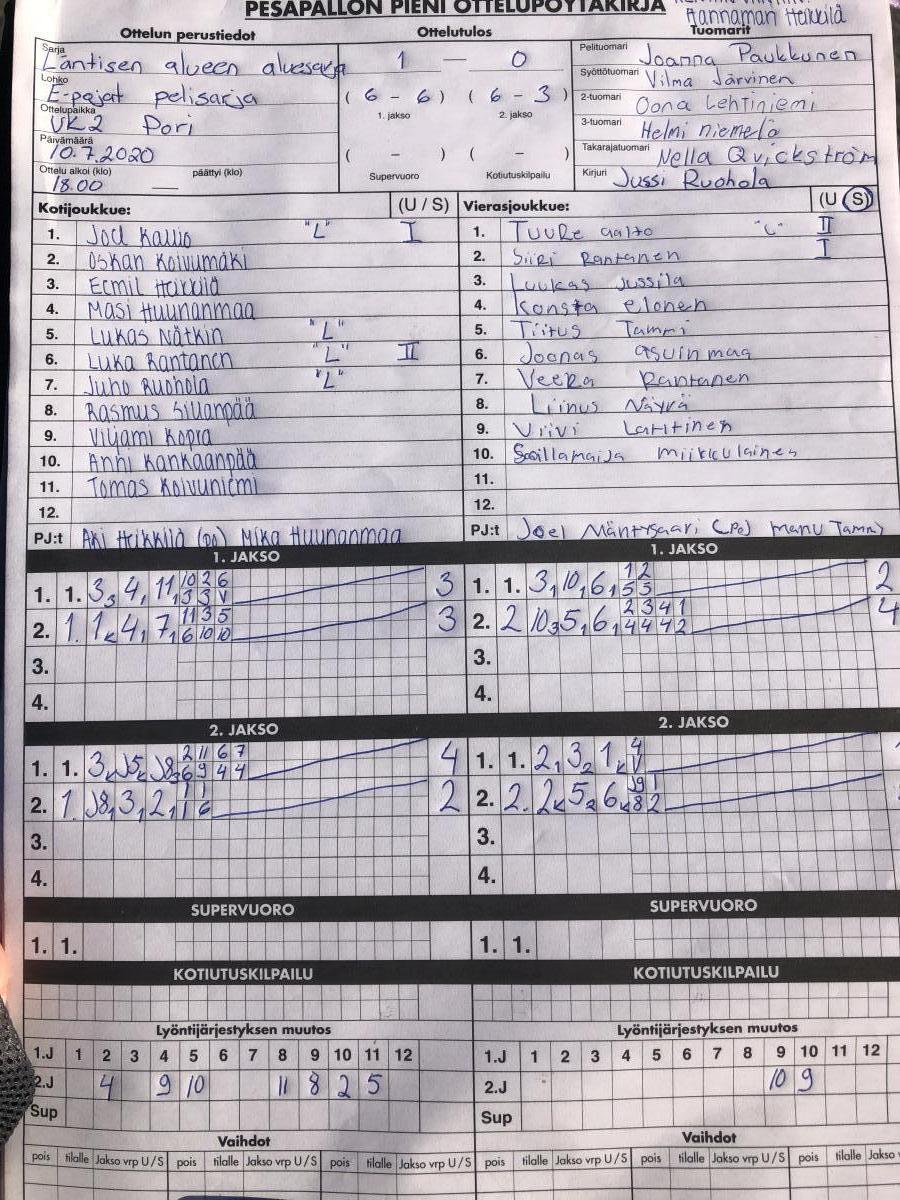 PESÄPALLON PIENI OTTELUPÖYTÄKIRJA
Hannamari Heikkilä
Ottelun perustiedot Ottelutulos Tuomarit
Sarja Läntisen alueen aluesarja
Lohko E-pojat pelisarja
Ottelupaikka UK2 Pori
Päivämäärä 10.7.2020
Ottelu alkoi (klo) 18.00 päättyi (klo) —
1 — 0
( 6 - 6 ) ( 6 - 3 )
1. jakso 2. jakso
( - ) ( - )
Supervuoro Kotiutuskilpailu
Pelituomari Joanna Paukkunen
Syöttötuomari Vilma Järvinen
2-tuomari Oona Lehtiniemi
3-tuomari Helmi niemelä
Takarajatuomari Nella Qvickström
Kirjuri Jussi Ruohola
Kotijoukkue: (U / S)
1. Joel Kallio "L" I
2. Oskari Koivumäki
3. Eemil Heikkilä
4. Masi Huunanmaa
5. Lukas Nätkin "L"
6. Luka Rantanen "L" II
7. Juho Ruohola "L"
8. Rasmus Sillanpää
9. Viljami Kopra
10. Anni Kankaanpää
11. Tomas Koivuniemi
12.
PJ:t Aki Heikkilä (po) Mika Huunanmaa
Vierasjoukkue: (U / S)
1. Tuure aalto "L" II
2. Siiri Rantanen I
3. Luukas Jussila
4. Konsta elonen
5. Tiitus Tammi
6. Joonas asuinmaa
7. Veera Rantanen
8. Liinus Näyrä
9. Viivi Lahtinen
10. miikkulainen
11.
12.
PJ:t Joel Mäntysaari (Po) manu Tammi
1. JAKSO 1. JAKSO
1. 1. 3 1. 1. 2
2. 1. 3 2. 2 4
3. 3.
4. 4.
2. JAKSO 2. JAKSO
1. 1. 4 1. 1.
2. 1. 2 2. 2.
3. 3.
4. 4.
SUPERVUORO SUPERVUORO
1. 1. 1. 1.
KOTIUTUSKILPAILU KOTIUTUSKILPAILU
Lyöntijärjestyksen muutos Lyöntijärjestyksen muutos
1.J 1 2 3 4 5 6 7 8 9 10 11 12 1.J 1 2 3 4 5 6 7 8 9 10 11 12
2.J 4 9 10 11 8 2 5 2.J 10 9
Sup Sup
Vaihdot Vaihdot
pois tilalle Jakso vrp U / S pois tilalle Jakso vrp U / S pois tilalle Jakso vrp U / S pois tilalle Jakso vrp U / S pois tilalle Jakso vrp U / S pois tilalle Jakso